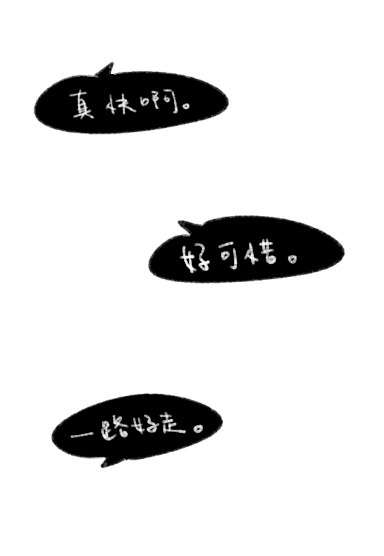 真快啊。
好可惜。
一路好走。